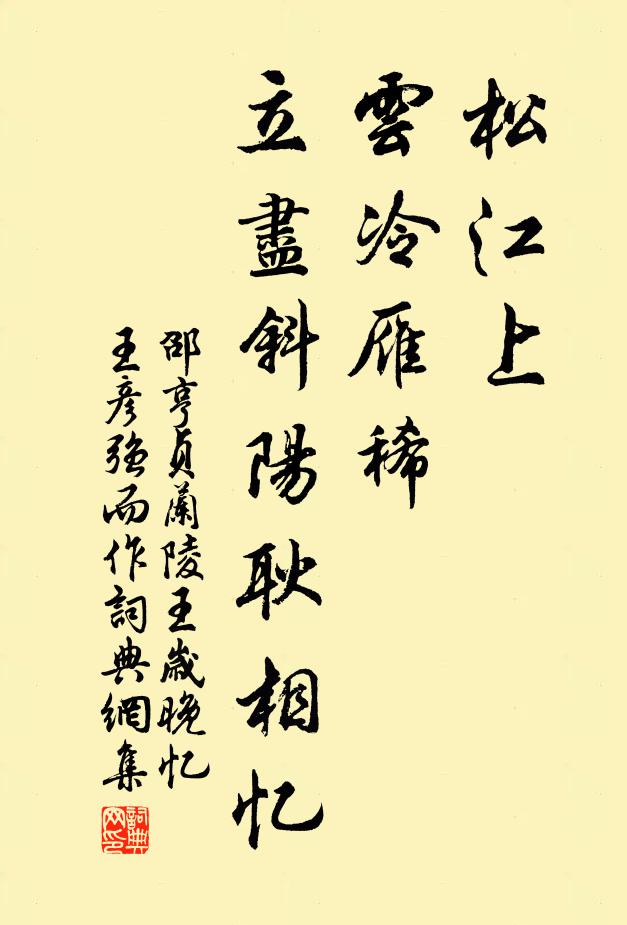 松江上
雲冷雁稀
立盡斜陽耿相忆
邵亨貞蘭陵王歲晚忆
王彦強而作詞典網集
詞典網印